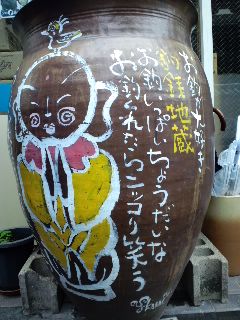 お釣が大好き
釣銭地蔵
お釣いっぱいちょうだいな
お釣くれたらニッコリ笑う